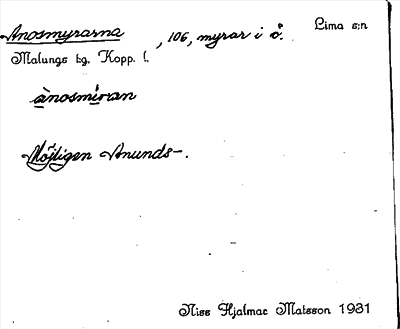 Anosmyrarna, 106, myrar i ö. Lima s:n
Malungs tg. Kopp. l.
ànosmíran
Möjligen Anunds-.
Niss Hjalmar Matsson 1931